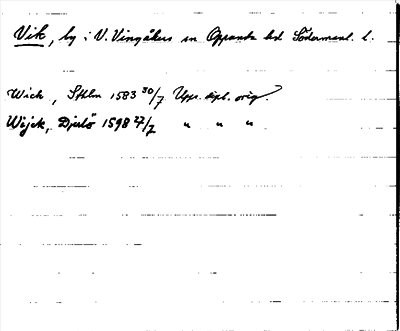 Vik, by i V. Vingåkers sn Oppunda hd Södermanl. l.
Wick, Sthlm 1583 30/7 Upps. dipl. orig.
Wijck, Djulö 1598 27/7 " " "